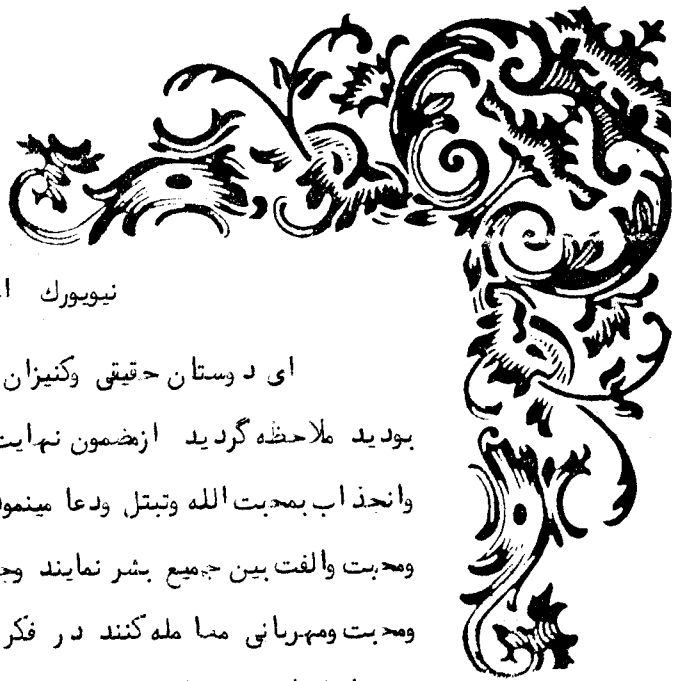 نیویورك
ای دوستان حقیقی وکنیزان
بودید ملاحظه گردید ازمضمون نهایت
وانجذاب بمحبت الله وتبتل ودعا مینمو
ومحبت والفت بین جمیع بشر نمایند وج
ومحبت ومهربانی معامله کنند در فکر